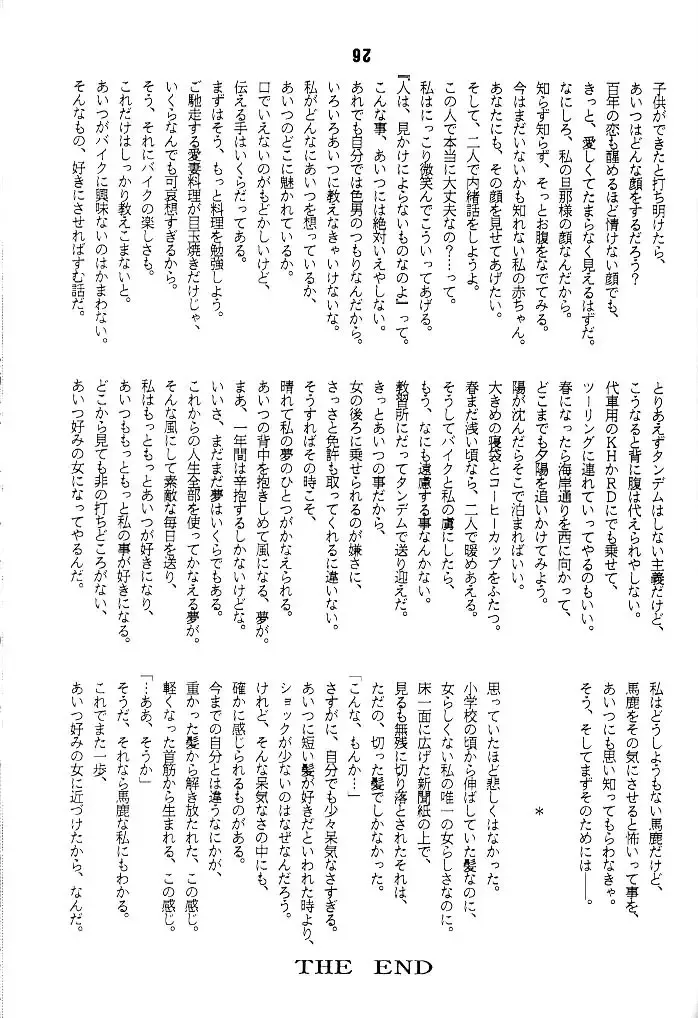 26
子供ができたと打ち明けたら、
あいつはどんな顔をするだろう？
百年の恋も醒めるほど情けない顔でも、
きっと、愛しくてたまらなく見えるはずだ。
なにしろ、私の旦那様の顔なんだから。
知らず知らず、そっとお腹をなでてみる。
今はまだいないかも知れない私の赤ちゃん。
あなたにも、その顔を見せてあげたい。
そして、二人で内緒話をしようよ。
この人で本当に大丈夫なの？……って。
私はにっこり微笑んでこういってあげる。
『人は、見かけによらないものなのよ』って。
こんな事、あいつには絶対いえやしない。
あれでも自分では色男のつもりなんだから。
いろいろあいつに教えなきゃいけないな。
私がどんなにあいつを想っているか、
あいつのどこに魅かれているか。
口でいえないのがもどかしいけど、
伝える手はいくらだってある。
まずはそう、もっと料理を勉強しよう。
ご馳走する愛妻料理が目玉焼きだけじゃ、
いくらなんでも可哀想すぎるから。
そう、それにバイクの楽しさも。
これだけはしっかり教えこまないと。
あいつがバイクに興味ないのはかまわない。
そんなもの、好きにさせればすむ話だ。
とりあえずタンデムはしない主義だけど、
こうなると背に腹は代えられやしない。
代車用のKHかRDにでも乗せて、
ツーリングに連れていってやるのもいい。
春になったら海岸通りを西に向かって、
どこまでも夕陽を追いかけてみよう。
陽が沈んだらそこで泊まればいい。
大きめの寝袋とコーヒーカップをふたつ。
春まだ浅い頃なら、二人で暖めあえる。
そうしてバイクと私の虜にしたら、
もう、なにも遠慮する事なんかない。
教習所にだってタンデムで送り迎えだ。
きっとあいつの事だから、
女の後ろに乗せられるのが嫌さに、
さっさと免許も取ってくれるに違いない。
そうすればその時こそ、
晴れて私の夢のひとつがかなえられる。
あいつの背中を抱きしめて風になる、夢が。
まあ、一年間は辛抱するしかないけどな。
いいさ、まだまだ夢はいくらでもある。
これからの人生全部を使ってかなえる夢が。
そんな風にして素敵な毎日を送り、
私はもっともっとあいつが好きになり、
あいつももっともっと私の事が好きになる。
どこから見ても非の打ちどころがない、
あいつ好みの女になってやるんだ。
私はどうしようもない馬鹿だけど、
馬鹿をその気にさせると怖いって事を、
あいつにも思い知ってもらわなきゃ。
そう、そしてまずそのためには――。
＊
思っていたほど悲しくはなかった。
小学校の頃から伸ばしていた髪なのに、
女らしくない私の唯一の女らしさなのに。
床一面に広げた新聞紙の上で、
見るも無残に切り落とされたそれは、
ただの、切った髪でしかなかった。
「こんな、もんか…」
さすがに、自分でも少々呆気なさすぎる。
あいつに短い髪が好きだといわれた時より、
ショックが少ないのはなぜなんだろう。
けれど、そんな呆気なさの中にも、
確かに感じられるものがある。
今までの自分とは違うなにかが、
重かった髪から解き放たれた、この感じ。
軽くなった首筋から生まれる、この感じ。
「…ああ、そうか」
そうだ、それなら馬鹿な私にもわかる。
これでまた一歩、
あいつ好みの女に近づけたから、なんだ。
THE END